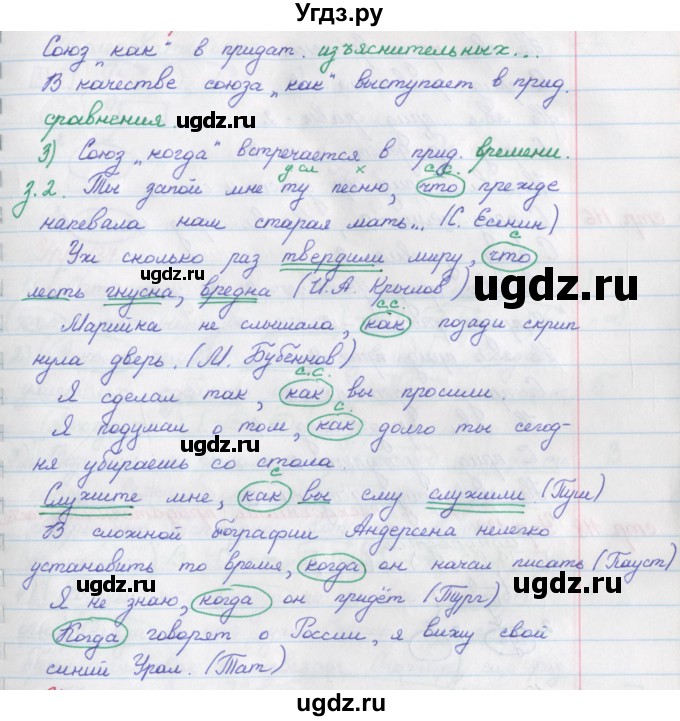 Угдз.ру
Союз „как“ в придат. изъяснительных...
В качестве союза „как“ выступает в прид.
сравнения
3) Союз „когда“ встречается в прид. времени.
з.2. Ты запой мне ту песню, что прежде
напевала нам старая мать... (С. Есенин)
Уж сколько раз твердили миру, что
лесть гнусна, вредна (И.А. Крылов)
Марийка не слышала, как позади скрип
нула дверь. (М. Бубённов)
Я сделал так, как вы просили.
Я подумал о том, как долго ты сегод-
ня убираешь со стола
Служите мне, как вы ему служили (Пуш)
В сложной биографии Андерсена нелегко
установить то время, когда он начал писать (Пауст)
Я не знаю, когда он придёт (Тург)
Когда говорят о России, я вижу свой
синий Урал. (Тат)
ugdz.ru